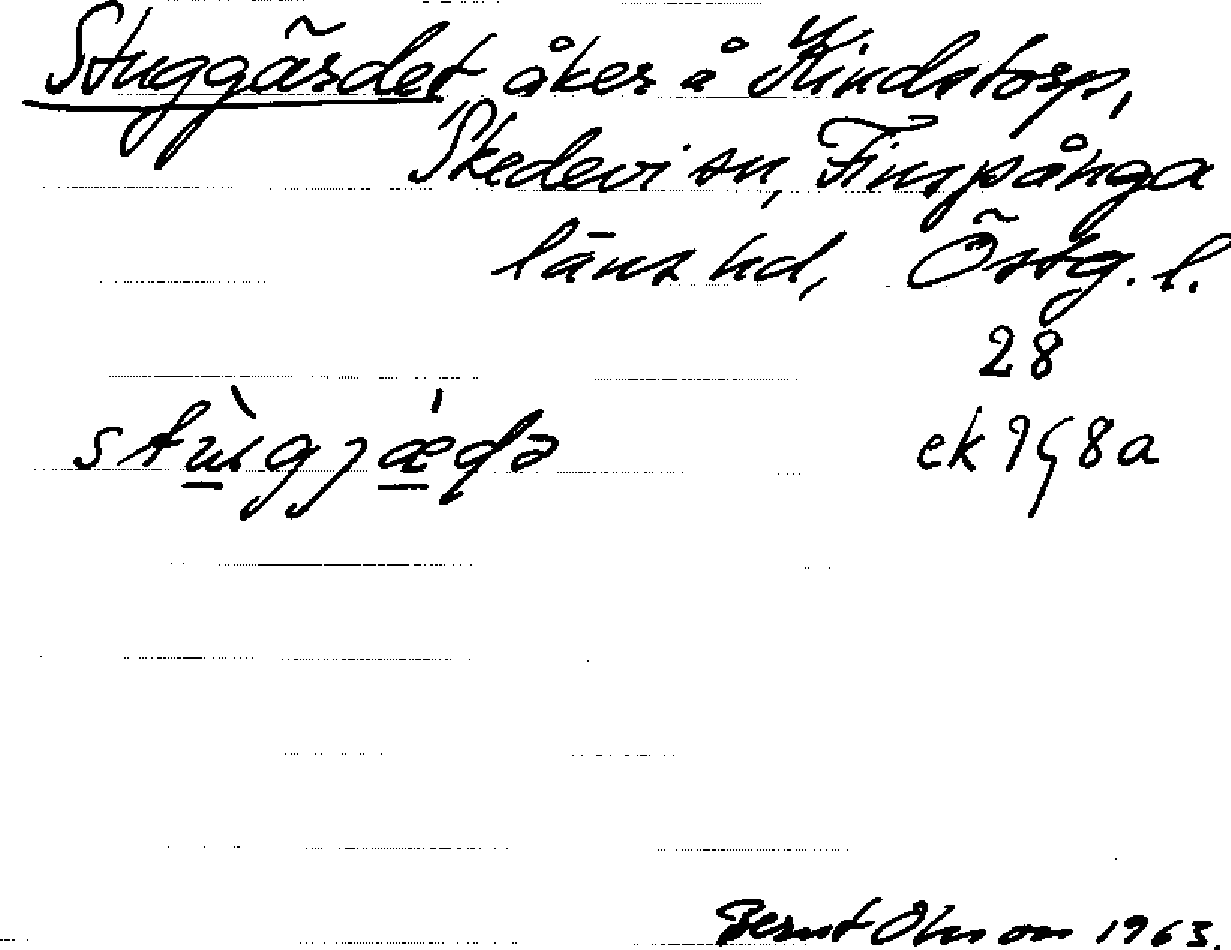 Stuggärdet åker å Kindstorp,
Skedevi sn, Finspånga
läns hd, Östg. l.
28
ek 9G8a
Bernt Olsson 1963.